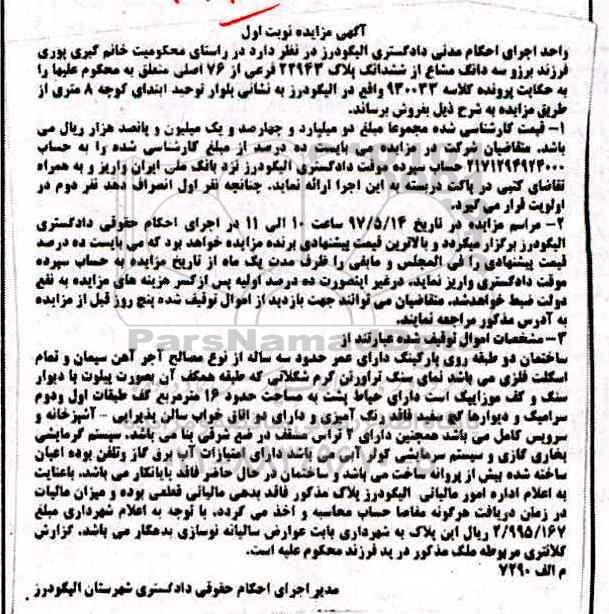 آگهی مزایده نوبت اول
واحد اجرای احکام مدنی دادگستری الیگودرز در نظر دارد در راستای محکومیت خانم کبری پوری
فرزند برزو سه دانگ مشاع از ششدانگ پلاک ۲۲۹۴۳ فرعی از ۷۶ اصلی متعلق به محکوم علیها را
به حکایت پرونده کلاسه ۹۳۰۰۳۳ واقع در الیگودرز به نشانی بلوار توحید ابتدای کوچه ۸ متری از
طریق مزایده به شرح ذیل بفروش برساند.
۱- قیمت کارشناسی شده مجموعا مبلغ دو میلیارد و چهارصد و یک میلیون و پانصد هزار ریال می
باشد. متقاضیان شرکت در مزایده می بایست ده درصد از مبلغ کارشناسی شده را به حساب
۲۱۷۱۲۹۴۹۲۴۰۰۰ حساب سپرده موقت دادگستری الیگودرز نزد بانک ملی ایران واریز و به همراه
تقاضای کتبی در پاکت دربسته به این اجرا ارائه نماید. چنانچه نفر اول انصراف دهد نفر دوم در
اولویت قرار می گیرد.
۲- مراسم مزایده در تاریخ ۹۷/۵/۱۴ ساعت ۱۰ الی ۱۱ در اجرای احکام حقوقی دادگستری
الیگودرز برگزار میگردد و بالاترین قیمت پیشنهادی برنده مزایده خواهد بود که می بایست ده درصد
قیمت پیشنهادی را فی المجلس و مابقی را ظرف مدت یک ماه از تاریخ مزایده به حساب سپرده
موقت دادگستری واریز نماید. درغیر اینصورت ده درصد اولیه پس ازکسر هزینه های مزایده به نفع
دولت ضبط خواهدشد. متقاضیان می توانند جهت بازدید از اموال توقیف شده پنج روز قبل از مزایده
به آدرس مذکور مراجعه نمایند.
۳- مشخصات اموال توقیف شده عبارتند از
ساختمان دو طبقه روی پارکینگ دارای عمر حدود سه ساله از نوع مصالح آجر آهن سیمان و تمام
اسکلت فلزی می باشد نمای سنگ تراورتن کرم شکلاتی که طبقه همکف آن بصورت پیلوت با دیوار
سنگ و کف موزاییک است دارای حیاط پشت به مساحت حدود ۱۶ مترمربع کف طبقات اول ودوم
سرامیک و دیوارها گچ سفید فاقد رنگ آمیزی و دارای دو اتاق خواب سالن پذیرایی - آشپزخانه و
سرویس کامل می باشد همچنین دارای ۲ تراس مسقف در ضلع شرقی بنا می باشد. سیستم گرمایشی
بخاری گازی و سیستم سرمایشی کولر آبی می باشد دارای امتیازات آب برق گاز وتلفن بوده اعیان
ساخته شده بیش از پروانه ساخت می باشد و ساختمان در حال حاضر فاقد پایانکار می باشد. باعنایت
به اعلام اداره امور مالیاتی الیگودرز پلاک مذکور فاقد بدهی مالیاتی قطعی بوده و میزان مالیات
در زمان دریافت هرگونه مفاصا حساب محاسبه و اخذ می گردد. با توجه به اعلام شهرداری مبلغ
۲/۹۹۵/۱۶۷ ریال این پلاک به شهرداری بابت عوارض سالیانه نوسازی بدهکار می باشد. گزارش
کلانتری مربوطه ملک مذکور در ید فرزند محکوم علیه است.
م الف ۷۲۹۰
مدیر اجرای احکام حقوقی دادگستری شهرستان الیگودرز
ParsNamad